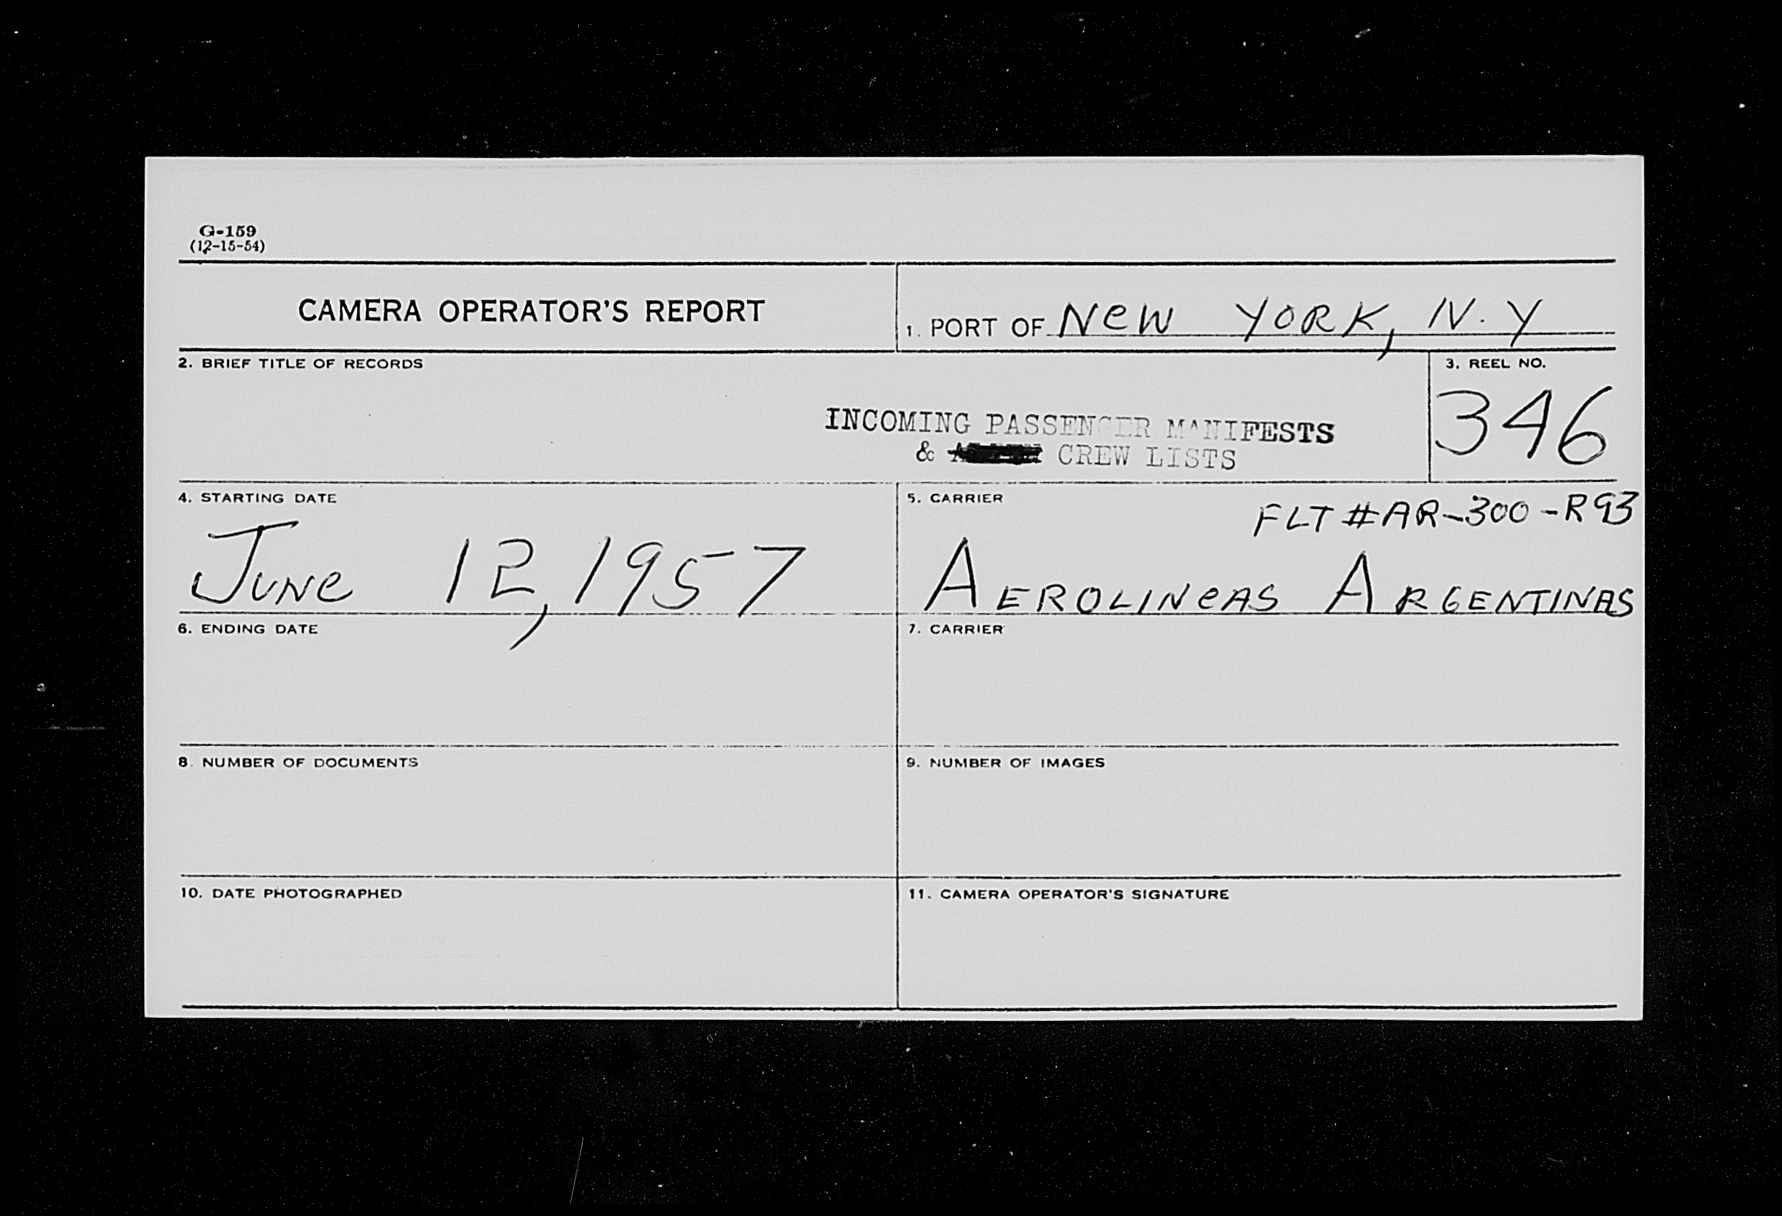 G-159
(12-15-54)
CAMERA OPERATOR'S REPORT
1. PORT OF New YORK, N.Y
2. BRIEF TITLE OF RECORDS
INCOMING PASSENGER MANIFESTS
& CREW LISTS
3. REEL NO.
346
4. STARTING DATE
June 12, 1957
5. CARRIER
FLT # AR-300-R93
AEROLINeAS ARGENTINAS
6. ENDING DATE
7. CARRIER
8. NUMBER OF DOCUMENTS
9. NUMBER OF IMAGES
10. DATE PHOTOGRAPHED
11. CAMERA OPERATOR'S SIGNATURE